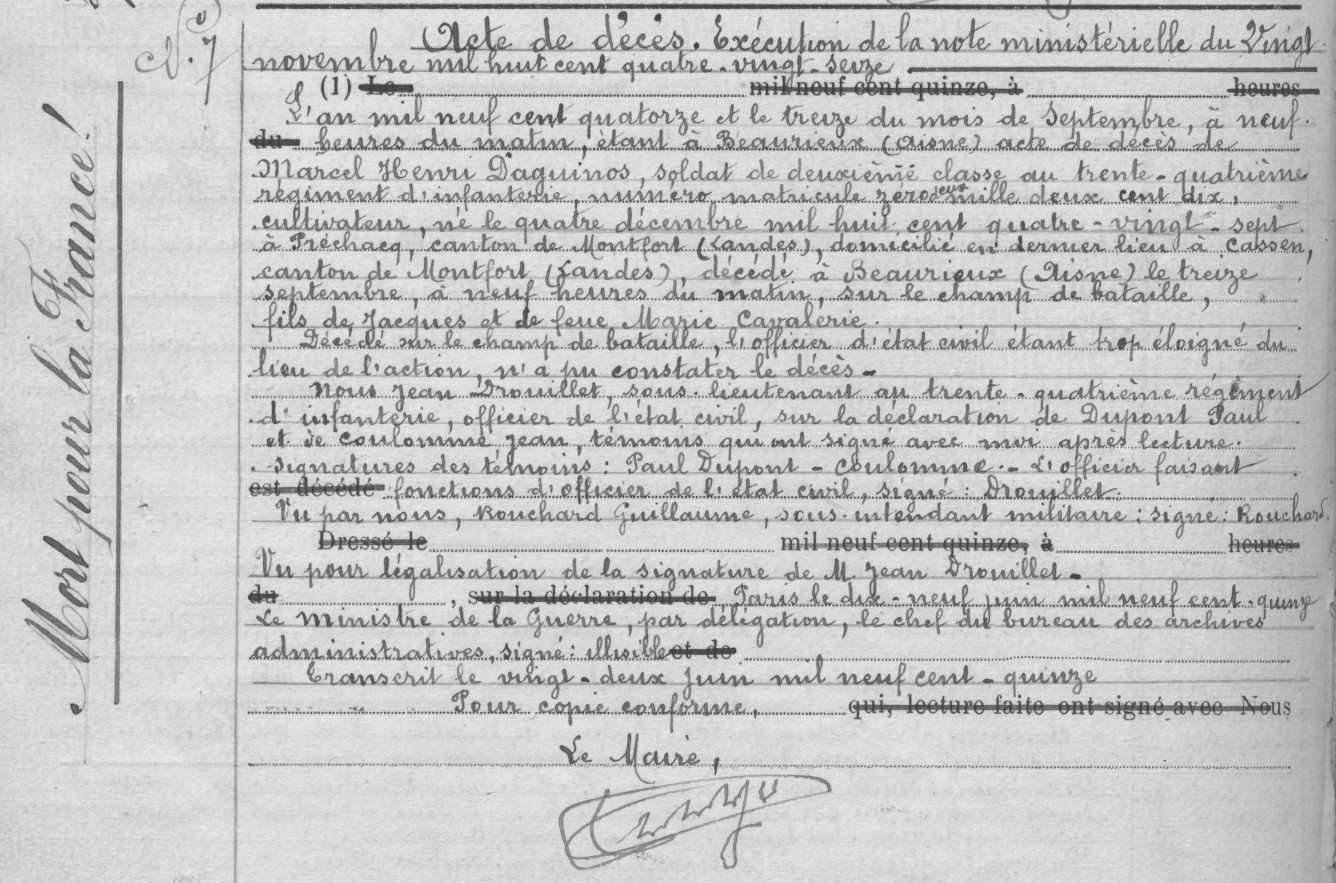 N° 7
Mort pour la France !
Acte de décès. Exécution de la note ministérielle du Vingt
novembre mil huit cent quatre-vingt-seize
(1) Le mil neuf cent quinze, à heures
L'an mil neuf cent quatorze et le treize du mois de Septembre, à neuf
du heures du matin, étant à Beaurieux (Aisne) acte de décès de
Marcel Henri Daguinos, soldat de deuxième classe au trente-quatrième
régiment d'infanterie, numéro matricule zéro deux mille deux cent dix,
cultivateur, né le quatre décembre mil huit cent quatre-vingt-sept
à Préchacq, canton de Montfort (Landes), domicilié en dernier lieu à Cassen,
canton de Montfort (Landes), décédé à Beaurieux (Aisne) le treize
septembre, à neuf heures du matin, sur le champ de bataille,
fils de Jacques et de feue Marie Cavalerie.
Décédé sur le champ de bataille, l'officier d'état civil étant trop éloigné du
lieu de l'action, n'a pu constater le décès -
Nous Jean Drouillet, sous-lieutenant au trente-quatrième régiment
d'infanterie, officier de l'état civil, sur la déclaration de Dupont Paul
et de Coulomme Jean, témoins qui ont signé avec moi après lecture.
Signatures des témoins : Paul Dupont - Coulomme - L'officier faisant
est décédé fonctions d'officier de l'état civil, signé : Drouillet.
Vu par nous, Rouchard Guillaume, sous-intendant militaire : signé : Rouchard
Dressé le mil neuf cent quinze, à heures
Vu pour légalisation de la signature de M. Jean Drouillet -
du , sur la déclaration de Paris le dix-neuf juin mil neuf cent-quinze
Le ministre de la Guerre, par délégation, le chef du bureau des archives
administratives, signé : illisible et de
Transcrit le vingt-deux Juin mil neuf cent-quinze
Pour copie conforme, qui, lecture faite ont signé avec Nous
Le Maire,